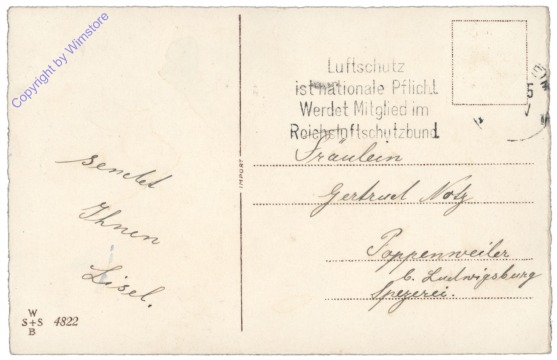 Copyright by Wimstore
Luftschutz
ist nationale Pflicht
Werdet Mitglied im
Reichsluftschutzbund
sendet
Ihnen
Lisel.
IMPORT
Fräulein
Gertrud Notz
Poppenweiler
b. Ludwigsburg
Spezerei.
W
S+S 4822
B